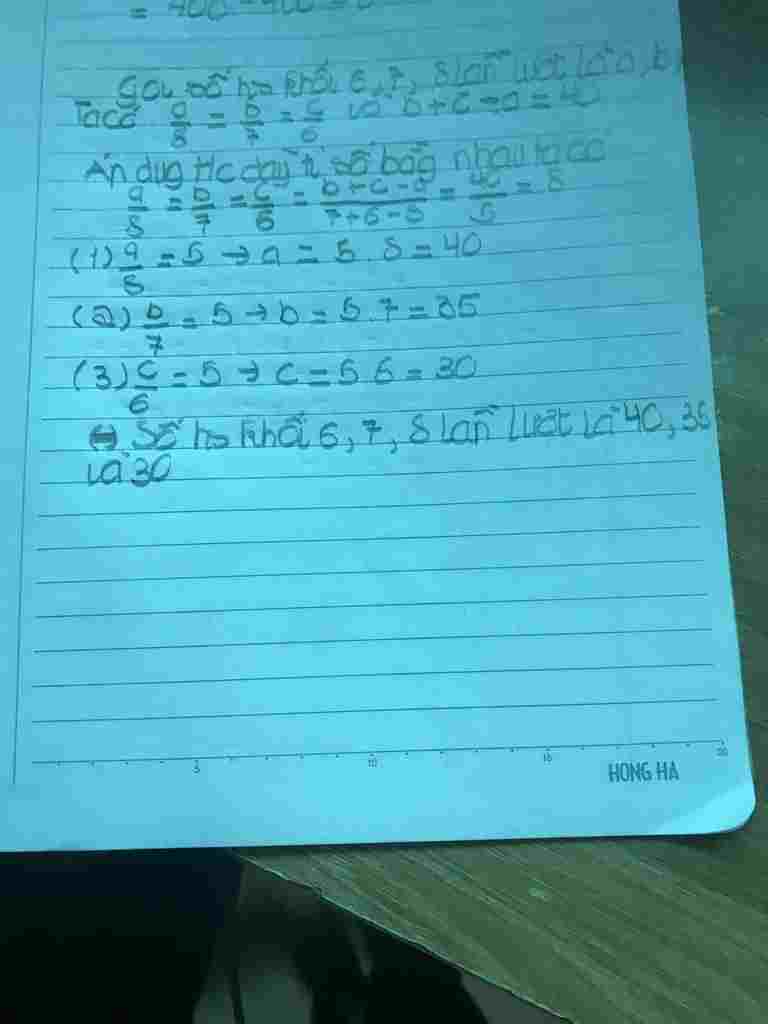 = 400 - 400 = 0
Gọi số hs khối 6, 7, 8 lần lượt là a, b,
Ta có a/8 = b/7 = c/6 và b + c - a = 40
Áp dụg t/c dãy tỉ số bằg nhau ta có
a/8 = b/7 = c/6 = b + c - a/7 + 6 - 8 = 40/5 = 8
(1) a/8 = 5 → a = 5 . 8 = 40
(2) b/7 = 5 → b = 5.7 = 35
(3) c/6 = 5 → c = 5 6 = 30
Số hs khối 6, 7, 8 lần lượt là 40, 35
và 30
5 10 15 20
HONG HA